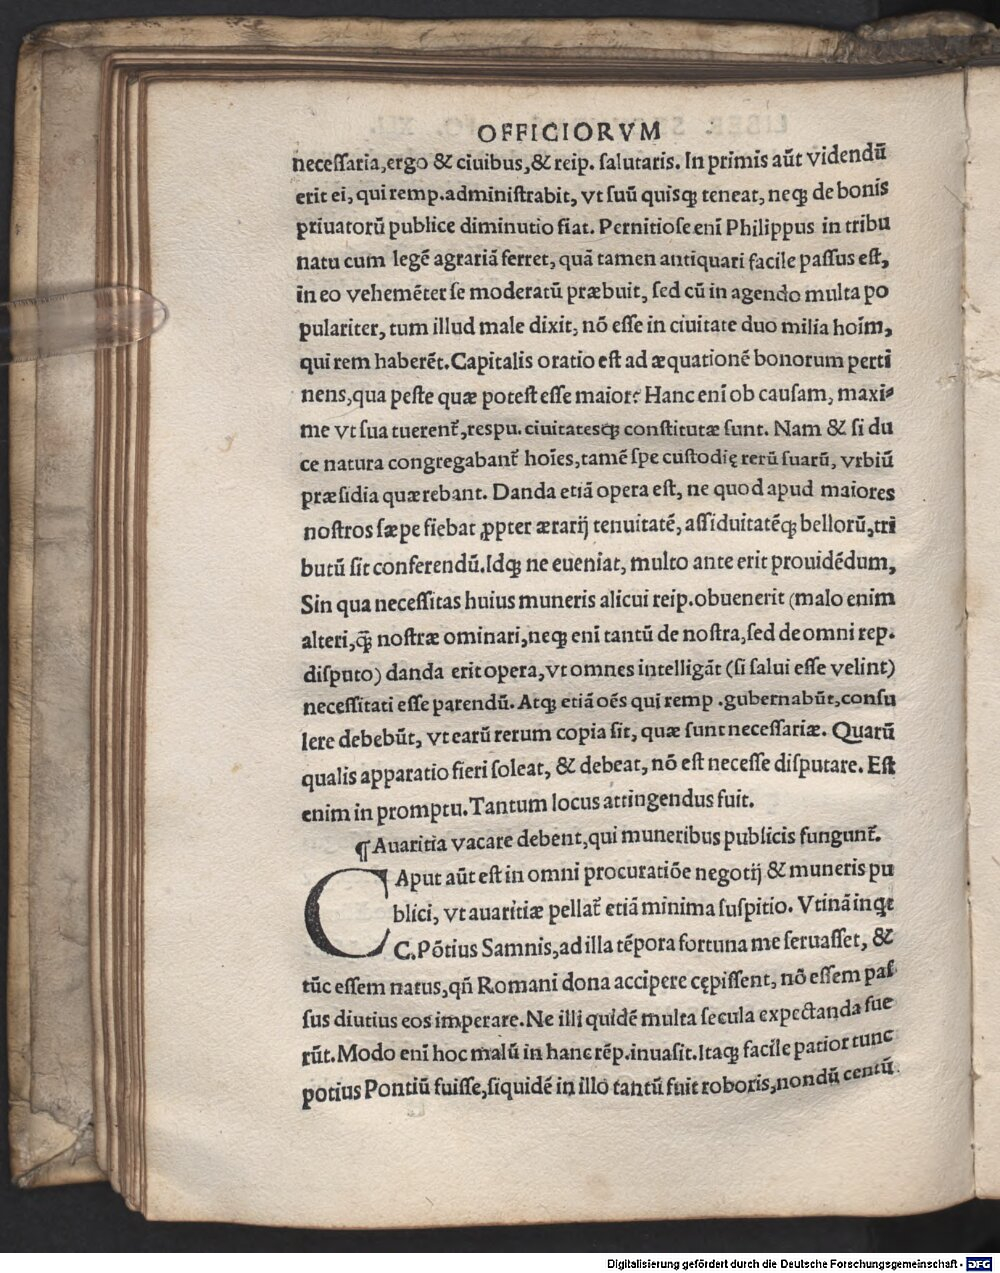 OFFICIORVM
necessaria,ergo & ciuibus,& reip. salutaris. In primis aūt videndū
erit ei, qui remp.administrabit, vt suū quisq; teneat, neq; de bonis
priuatorū publice diminutio fiat. Pernitiose enī Philippus in tribu
natu cum legē agrariā ferret, quā tamen antiquari facile passus est,
in eo vehemēter se moderatū præbuit, sed cū in agendo multa po
pulariter, tum illud male dixit, nō esse in ciuitate duo milia hoīm,
qui rem haberēt. Capitalis oratio est ad æquationē bonorum perti
nens,qua peste quæ potest esse maior? Hanc enī ob causam, maxi-
me vt sua tuerent᷑,respu. ciuitatesq; constitutæ sunt. Nam & si du
ce natura congregabant᷑ hoīes,tamē spe custodię rerū suarū, vrbiū
præsidia quærebant. Danda etiā opera est, ne quod apud maiores
nostros sæpe fiebat ꝓpter ærarij tenuitatē, assiduitatēq; bellorū,tri
butū sit conferendū.Idq; ne eueniat, multo ante erit prouidēdum,
Sin qua necessitas huius muneris alicui reip.obuenerit (malo enim
alteri,q̄ nostræ ominari,neq; enī tantū de nostra,sed de omni rep.
disputo) danda erit opera, vt omnes intelligāt (si salui esse velint)
necessitati esse parendū. Atq; etiā oēs qui remp .gubernabūt,consu
lere debebūt, vt earū rerum copia sit, quæ sunt necessariæ. Quarū
qualis apparatio fieri soleat, & debeat, nō est necesse disputare. Est
enim in promptu. Tantum locus attingendus fuit.
¶ Auaritia vacare debent,qui muneribus publicis fungunt᷑.
CAput aūt est in omni procuratiōe negotij & muneris pu
blici, vt auaritiæ pellat᷑ etiā minima suspitio. Vtinā inqt
C.Pōtius Samnis,ad illa tēpora fortuna me seruasset, &
tūc essem natus,qn̄ Romani dona accipere cępissent, nō essem pas
sus diutius eos imperare. Ne illi quidē multa secula expectanda fue
rūt. Modo enī hoc malū in hanc rēp.inuasit. Itaq; facile patior tunc
potius Pontiū fuisse,siquidē in illo tantū fuit roboris,nondū centū
Digitalisierung gefördert durch die Deutsche Forschungsgemeinschaft - DFG